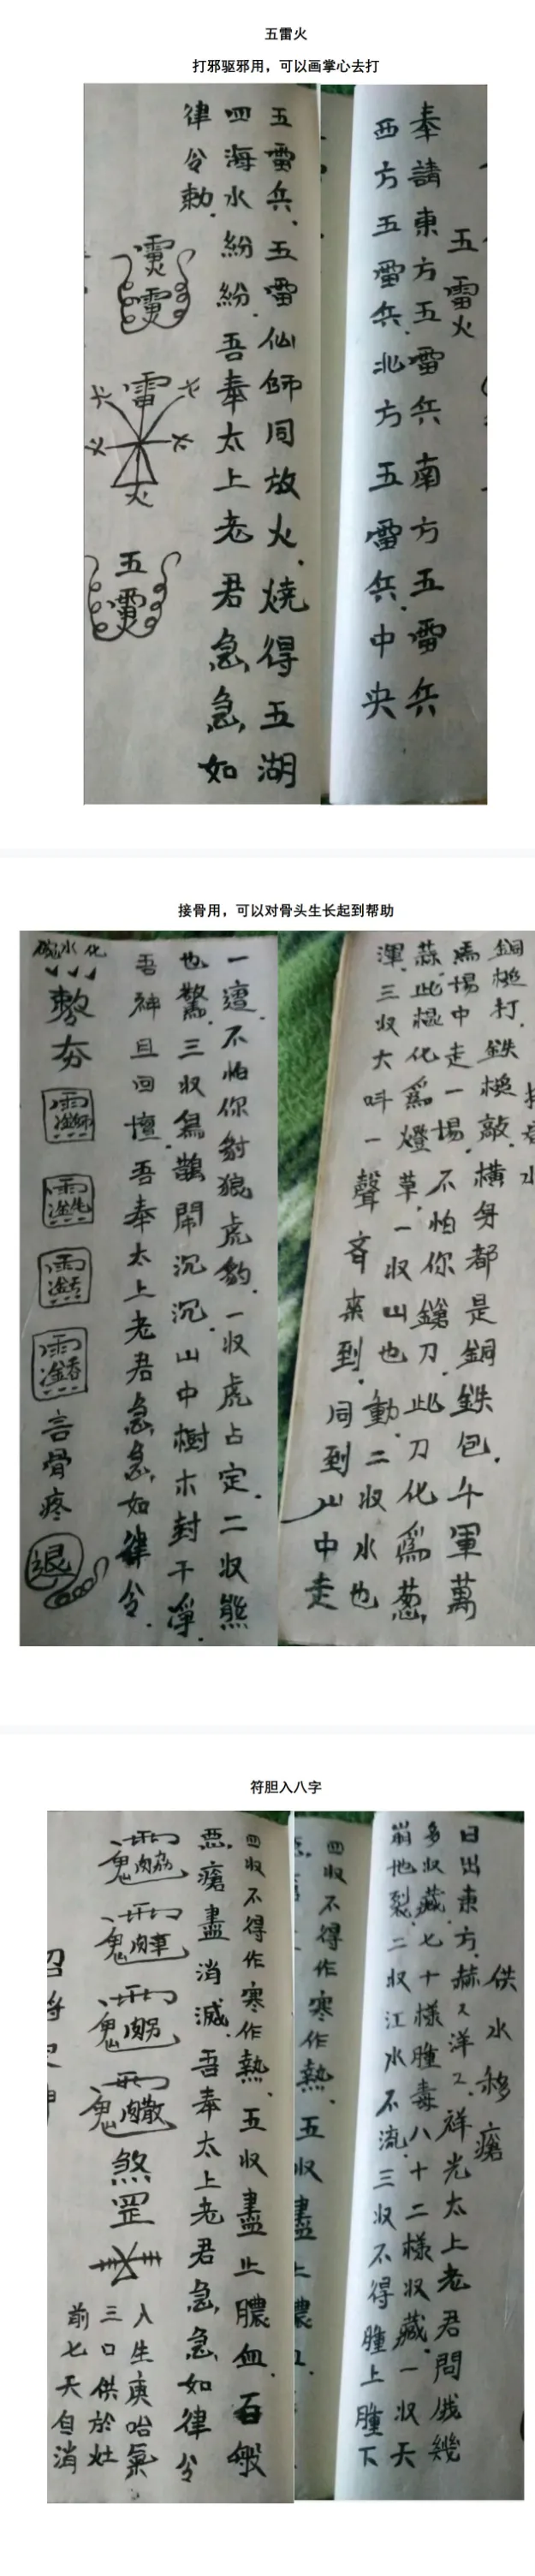 五雷火
打邪驱邪用，可以画掌心去打
五雷火
奉請東方五雷兵南方五雷兵
西方五雷兵.北方五雷兵.中央
五雷兵.五雷仙師同放火.燒得五湖
四海水紛紛.吾奉太上老君急急如
律令勅.
雷
火
五
接骨用，可以对骨头生长起到帮助
銅槌打.鉄槌敲.橫身都是銅鉄包.千軍萬
馬場中走一場.不怕你鎗刀.此刀化爲葱,
蒜.此棍化爲燈草.一收山也動.二收水也
渾.三收大呌一聲斉来到.同到山中走
一遭.不怕你豺狼虎豹.一收虎占定.二收熊
也驚.三收烏鵲鬧沉沉.山中樹木封干净.
吾神且回壇.吾奉太上老君急急如律令.
碗水化
敕夯
言骨疼
退
符胆入八字
供水移瘡
日出東方.赫々洋々.祥光太上老君問俄幾
多收藏.七十樣腫毒八十二樣收藏.一收天
崩地裂.二收江水不流.三收不得腫上腫下
四收不得作寒作熱.五收盡止膿血.
四收不得作寒作熱.五收盡止膿血.百般
惡瘡盡消滅.吾奉太上老君急急如律令
煞罡
入生庚哈氣
三口供於灶
前七天自消